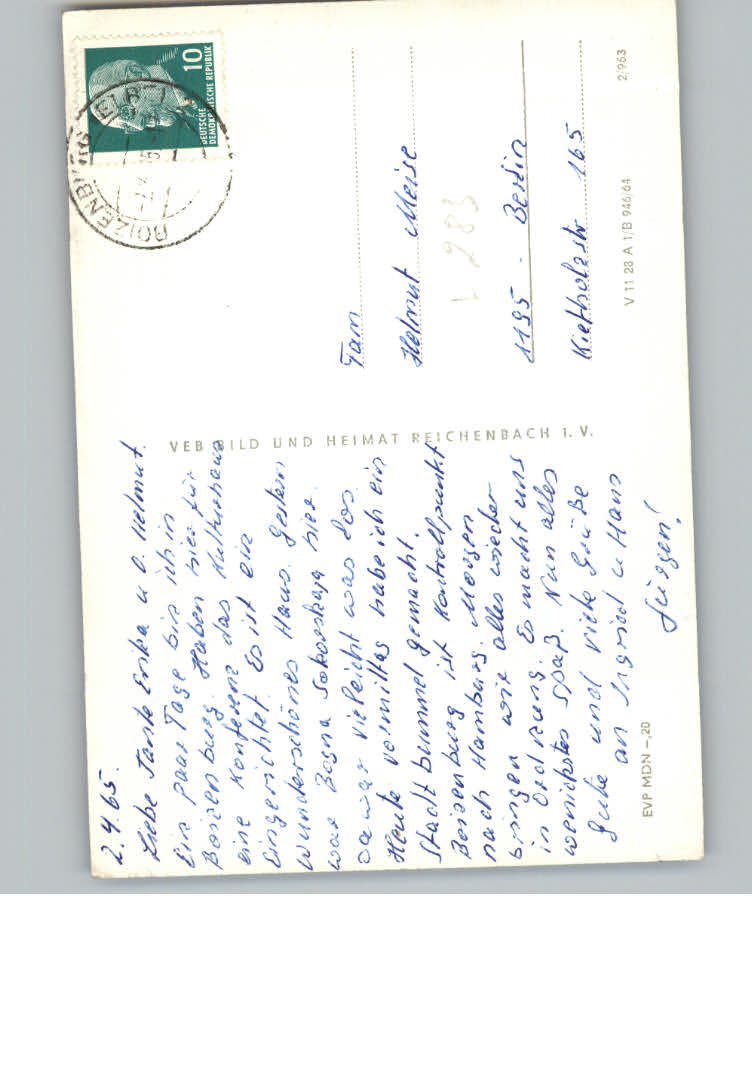 2.4.65.
Liebe Tante Erika u. O. Helmut.
Ein paar Tage bin ich in
Boizenburg. Haben hier für
eine Konferenz das Kulturhaus
Eingerichtet. Es ist ein
wunderschönes Haus. Gestern
war Bogna Sokorskaja hier.
Da war vieleicht was los.
Heute vormittag habe ich ein
Stadtbummel gemacht.
Boizenburg ist Kontrollpunkt
nach Hamburg. Morgen
bringen wir alles wieder
in Ordnung. Es macht uns
wenichstes spaß. Nun alles
gute und viele Grüße
an Ingried u Hans
Jürgen!
VEB BILD UND HEIMAT REICHENBACH I. V.
EVP MDN –,20
10
DEUTSCHE
DEMOKRATISCHE REPUBLIK
BOIZENBURG (ELBE)
Fam
Helmut Meise
L 283
1195 - Berlin
Kiefholzstr 165
V 11 28 A 1/B 946/64
2/963